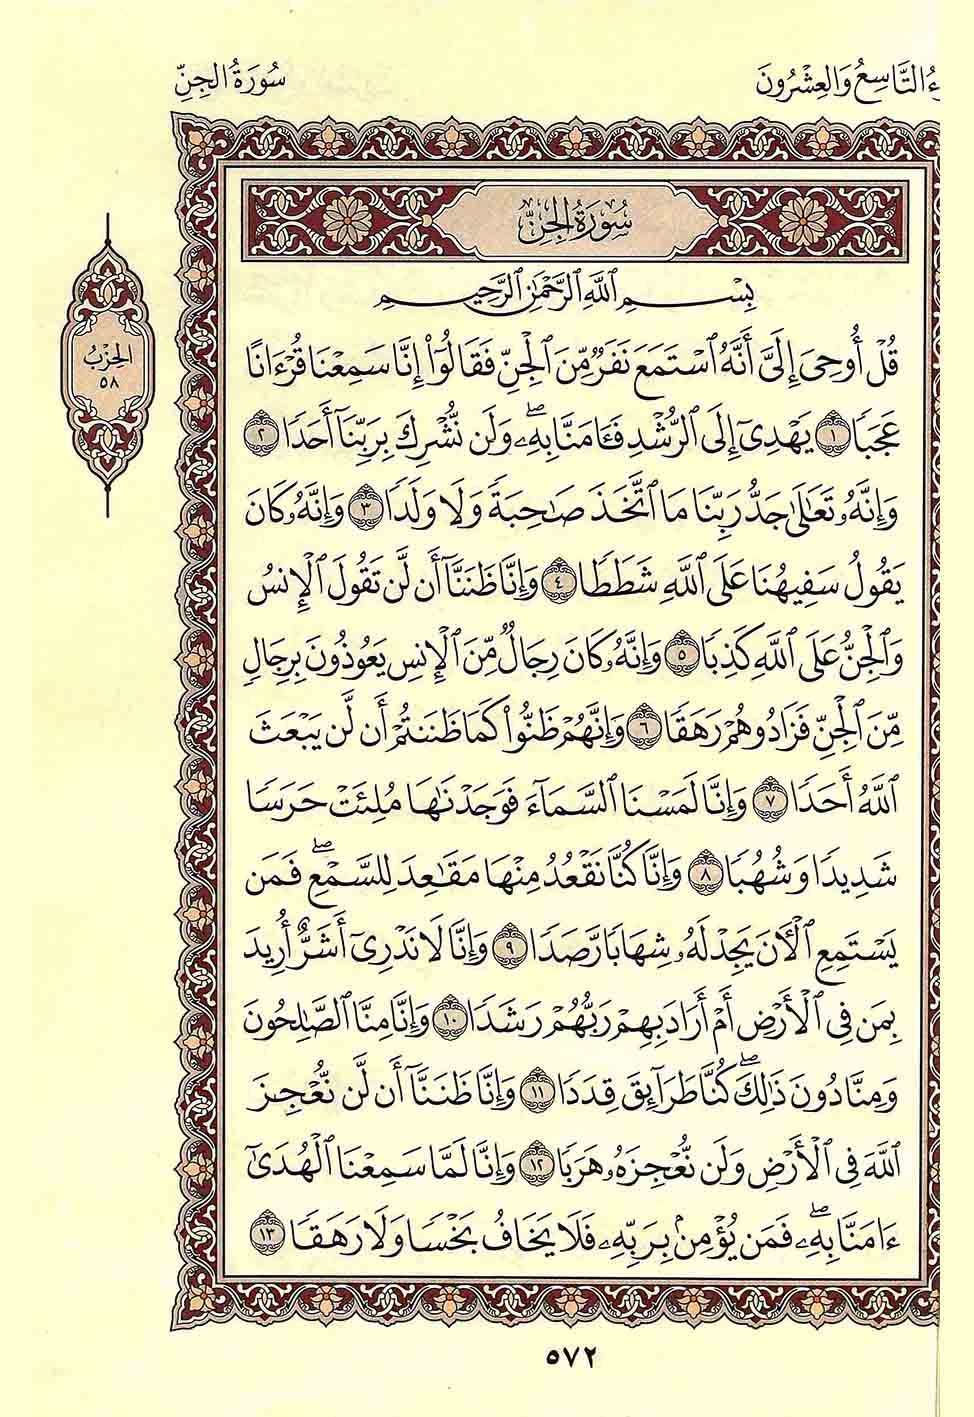 ءُ التَّاسِعُ وَالعِشْرُونَ
سُورَةُ الجِنِّ
سُورَةُ الجِنِّ
بِسْمِ ٱللَّهِ ٱلرَّحْمَٰنِ ٱلرَّحِيمِ
الحِزْبُ
٥٨
قُلْ أُوحِىَ إِلَىَّ أَنَّهُ ٱسْتَمَعَ نَفَرٌ مِّنَ ٱلْجِنِّ فَقَالُوٓا۟ إِنَّا سَمِعْنَا قُرْءَانًا
عَجَبًا ١ يَهْدِىٓ إِلَى ٱلرُّشْدِ فَـَٔامَنَّا بِهِۦ ۖ وَلَن نُّشْرِكَ بِرَبِّنَآ أَحَدًا ٢
وَإِنَّهُۥ تَعَٰلَىٰ جَدُّ رَبِّنَا مَا ٱتَّخَذَ صَٰحِبَةً وَلَا وَلَدًا ٣ وَإِنَّهُۥ كَانَ
يَقُولُ سَفِيهُنَا عَلَى ٱللَّهِ شَطَطًا ٤ وَإِنَّا ظَنَنَّآ أَن لَّن تَقُولَ ٱلْإِنسُ
وَٱلْجِنُّ عَلَى ٱللَّهِ كَذِبًا ٥ وَإِنَّهُۥ كَانَ رِجَالٌ مِّنَ ٱلْإِنسِ يَعُوذُونَ بِرِجَالٍ
مِّنَ ٱلْجِنِّ فَزَادُوهُمْ رَهَقًا ٦ وَإِنَّهُمْ ظَنُّوا۟ كَمَا ظَنَنتُمْ أَن لَّن يَبْعَثَ
ٱللَّهُ أَحَدًا ٧ وَإِنَّا لَمَسْنَا ٱلسَّمَآءَ فَوَجَدْنَٰهَا مُلِئَتْ حَرَسًا
شَدِيدًا وَشُهُبًا ٨ وَإِنَّا كُنَّا نَقْعُدُ مِنْهَا مَقَٰعِدَ لِلسَّمْعِ ۖ فَمَن
يَسْتَمِعِ ٱلْـَٔانَ يَجِدْ لَهُۥ شِهَابًا رَّصَدًا ٩ وَإِنَّا لَا نَدْرِىٓ أَشَرٌّ أُرِيدَ
بِمَن فِى ٱلْأَرْضِ أَمْ أَرَادَ بِهِمْ رَبُّهُمْ رَشَدًا ١٠ وَإِنَّا مِنَّا ٱلصَّٰلِحُونَ
وَمِنَّا دُونَ ذَٰلِكَ ۖ كُنَّا طَرَآئِقَ قِدَدًا ١١ وَإِنَّا ظَنَنَّآ أَن لَّن نُّعْجِزَ
ٱللَّهَ فِى ٱلْأَرْضِ وَلَن نُّعْجِزَهُۥ هَرَبًا ١٢ وَإِنَّا لَمَّا سَمِعْنَا ٱلْهُدَىٰٓ
ءَامَنَّا بِهِۦ ۖ فَمَن يُؤْمِنۢ بِرَبِّهِۦ فَلَا يَخَافُ بَخْسًا وَلَا رَهَقًا ١٣
٥٧٢